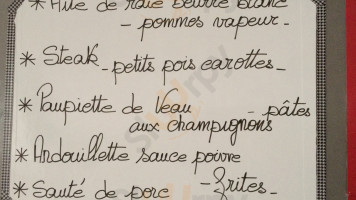 * Aile de raie beurre blanc
- pommes vapeur -
* Steak - petits pois carottes -
* Paupiette de Veau - pâtes
aux champignons
* Andouillette sauce poivre
* Sauté de porc - frites -